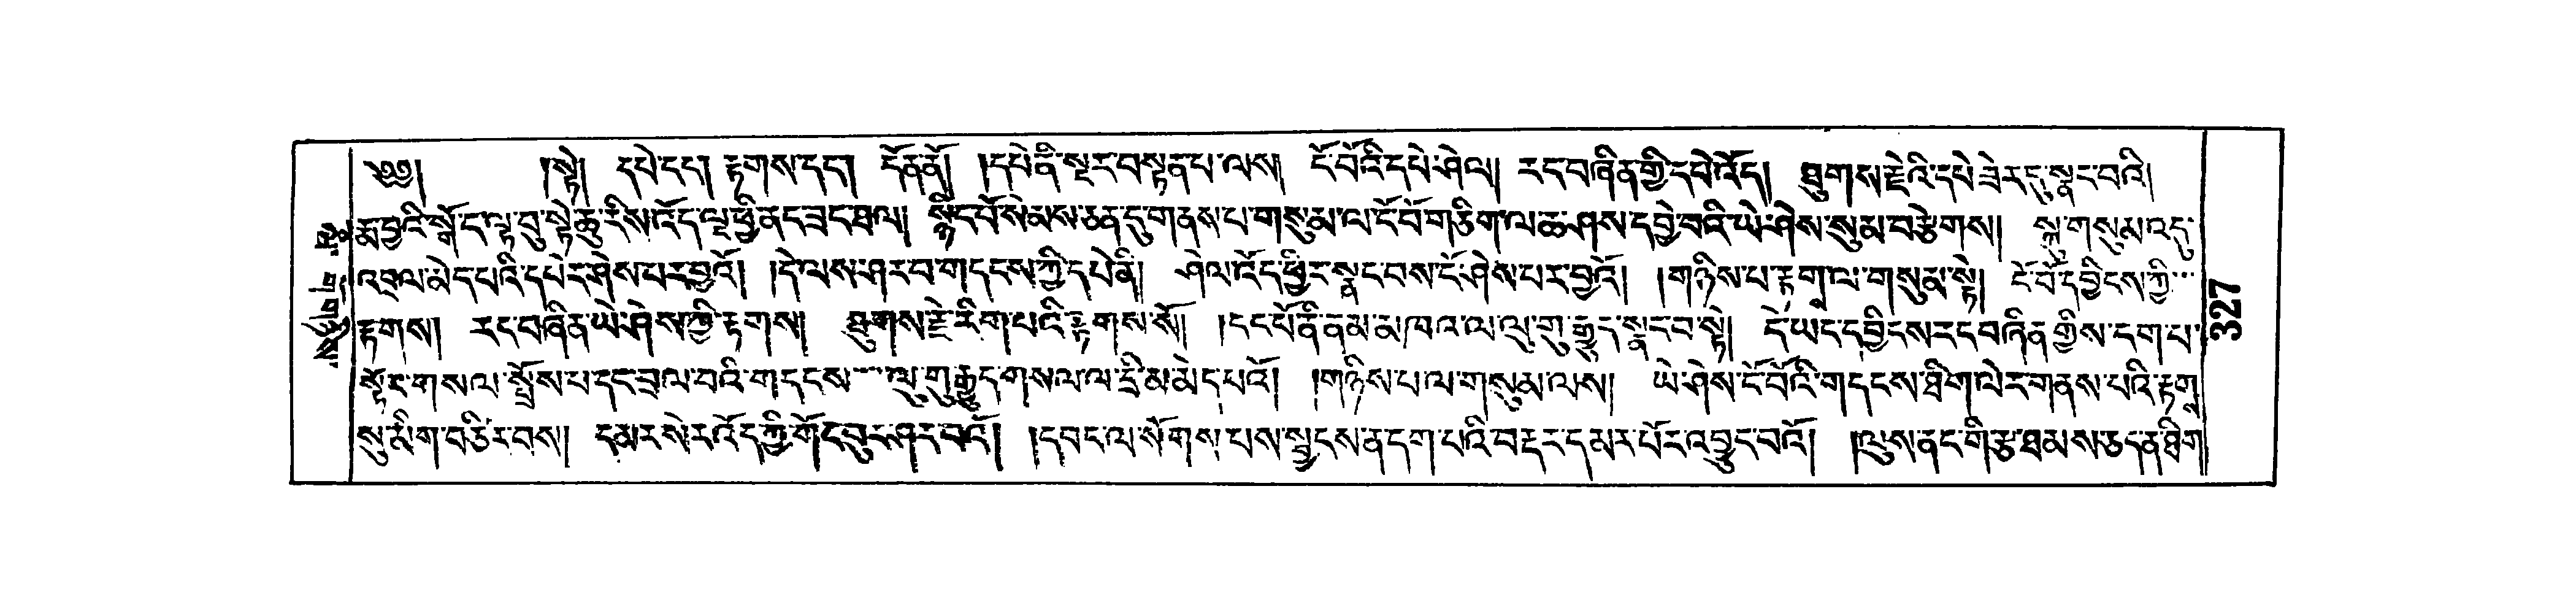 ༄༅། །སྟེ། དཔེ་དང། རྟགས་དང། དོན་ནོ། །དཔེ་ནི་སྔར་བསྟན་པ་ལས། ངོ་བོའི་དཔེ་ཤེལ། རང་བཞིན་གྱི་དཔེ་འོད། ཐུགས་རྗེའི་དཔེ་ཟེར་དུ་སྣང་བའི།
རྨ་བྱའི་སྒོ་ང་ལྟ་བུ་སྟེ་ཆུ་ངོས་འོད་ལྔ་ཕྱིན་ད་ཟང་ཐལ། སྙིང་པོ་སེམས་ཅན་དུ་གནས་པ་གསུམ་ལ་ངོ་བོ་གཅིག་ལ་ཆ་ཤས་དབྱེ་བའི་ཡེ་ཤེས་སུམ་བརྩེགས། སྐུ་གསུམ་འདུ་
འབྲལ་མེད་པའི་དཔེར་ཤེས་པར་བྱའོ། །དེ་ལས་ཤར་བ་གདངས་ཀྱི་དཔེ་ནི། ཤེལ་འོད་ཕྱིར་སྣང་བས་ངོ་ཤེས་པར་བྱའོ། །གཉིས་པ་རྟགས་ལ་གསུམ་སྟེ། ངོ་བོ་དབྱིངས་ཀྱི་
རྟགས། རང་བཞིན་ཡེ་ཤེས་ཀྱི་རྟགས། ཐུགས་རྗེ་རིག་པའི་རྟགས་སོ། །དང་པོ་ནི་ནམ་མཁའ་ལ་ལུ་གུ་རྒྱུད་སྣང་བ་སྟེ། དེ་ཡང་དབྱིངས་རང་བཞིན་གྱིས་དག་པ་
སྟོང་གསལ་སྤྲོས་པ་དང་བྲལ་བའི་གདངས་ལུ་གུ་རྒྱུད་གསལ་ལ་དྲི་མ་མེད་པའོ། །གཉིས་པ་ལ་གསུམ་ལས། ཡེ་ཤེས་ངོ་བོའི་གདངས་ཐིག་ལེར་གནས་པའི་རྟགས་
སུ་མིག་བཙིར་བས། དམར་སེར་འོད་ཀྱི་གོང་བུར་ཤར་བའོ། །དབང་ལ་སོགས་པས་སྦྱངས་ན་དག་པའི་བརྡར་དམར་པོར་འབྱུང་བའོ། །ལུས་ནང་གི་རྩ་ཐམས་ཅད་ན་ཐིག